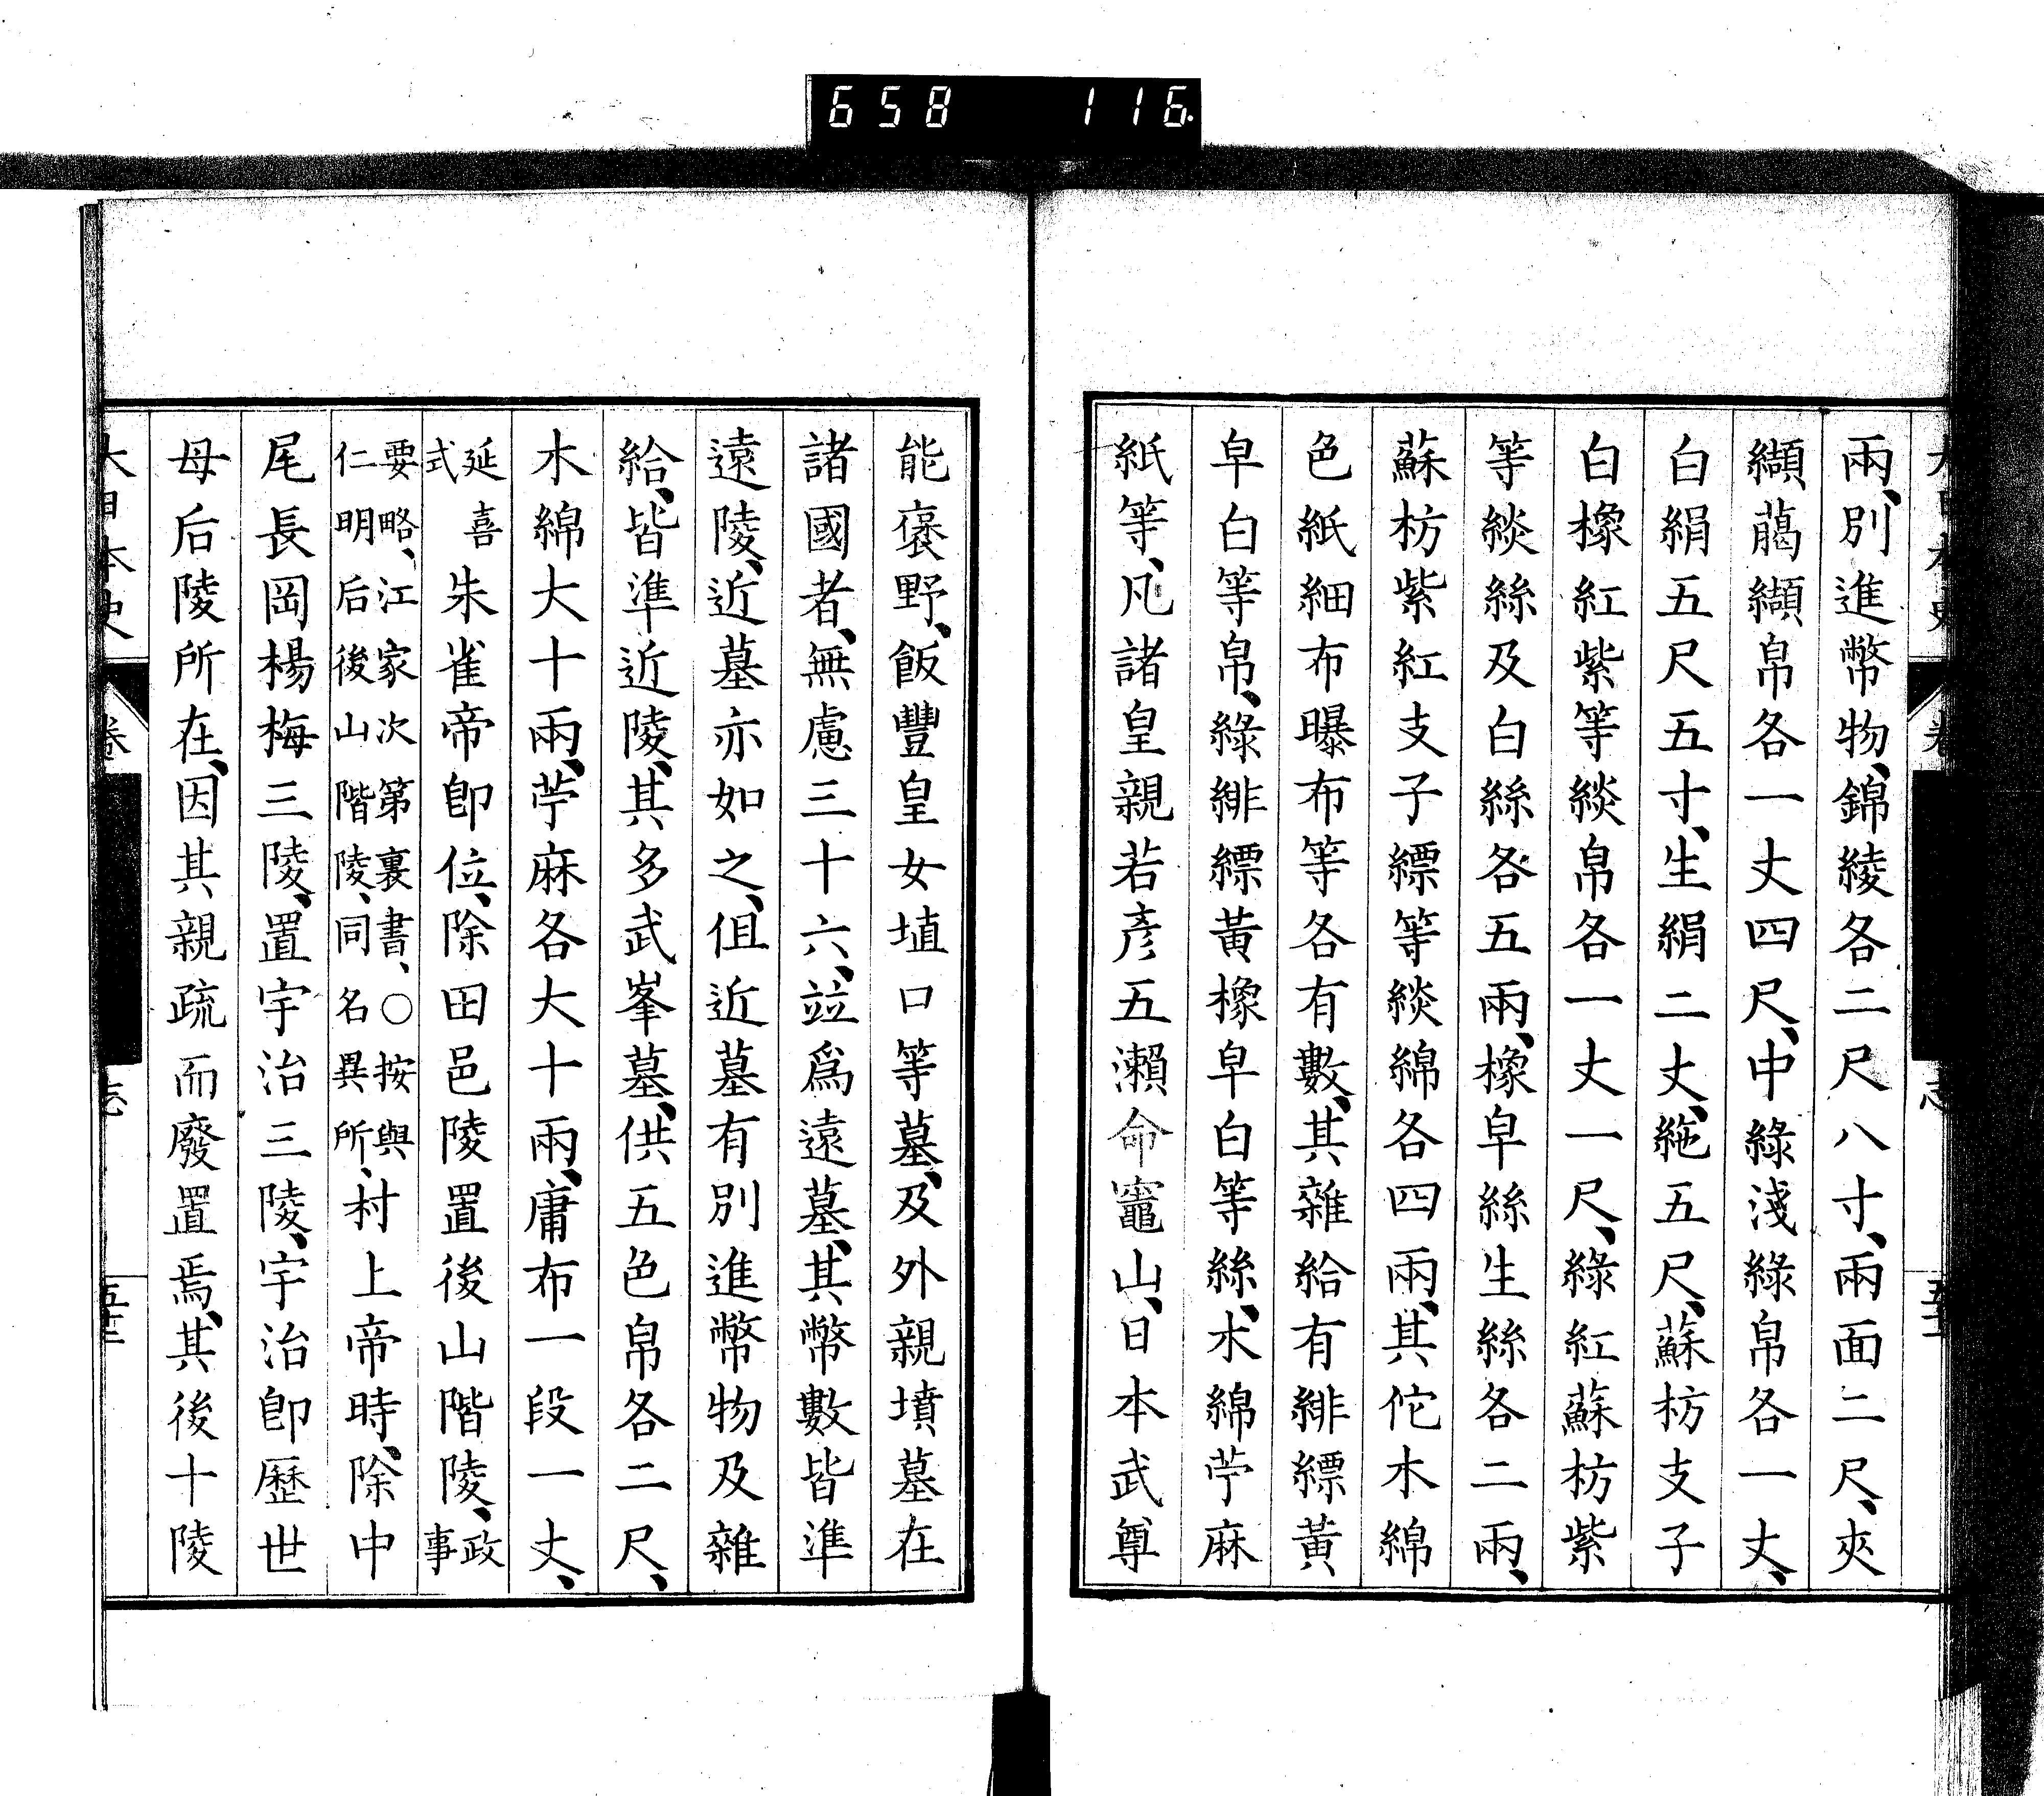 658 116
兩、別進幣物、錦綾各二尺八寸、兩面二尺、夾
纈﨟纈帛各一丈四尺、中綠淺綠帛各一丈、
白絹五尺五寸、生絹二丈、絁五尺、蘇枋支子
白橡紅紫等緂帛各一丈一尺、綠紅蘇枋紫
等緂絲及白絲各五兩、橡皁絲生絲各二兩、
蘇枋紫紅支子縹等緂綿各四兩、其佗木綿
色紙細布曝布等各有數、其雜給有緋縹黃
皁白等帛、綠緋縹黃橡皁白等絲、木綿苧麻
紙等、凡諸皇親若彥五瀨命竈山、日本武尊
能褒野、飯豐皇女埴口等墓、及外親墳墓在
諸國者、無慮三十六、竝爲遠墓、其幣數皆準
遠陵、近墓亦如之、但近墓有別進幣物及雜
給、皆準近陵、其多武峯墓、供五色帛各二尺、
木綿大十兩、苧麻各大十兩、庸布一段一丈、
延喜式朱雀帝卽位、除田邑陵置後山階陵、政事
要略、江家次第裏書、○按與仁明后後山階陵、同名異所、村上帝時、除中
尾長岡楊梅三陵、置宇治三陵、宇治卽歷世
母后陵所在、因其親疏而廢置焉、其後十陵
大日本史 卷 志